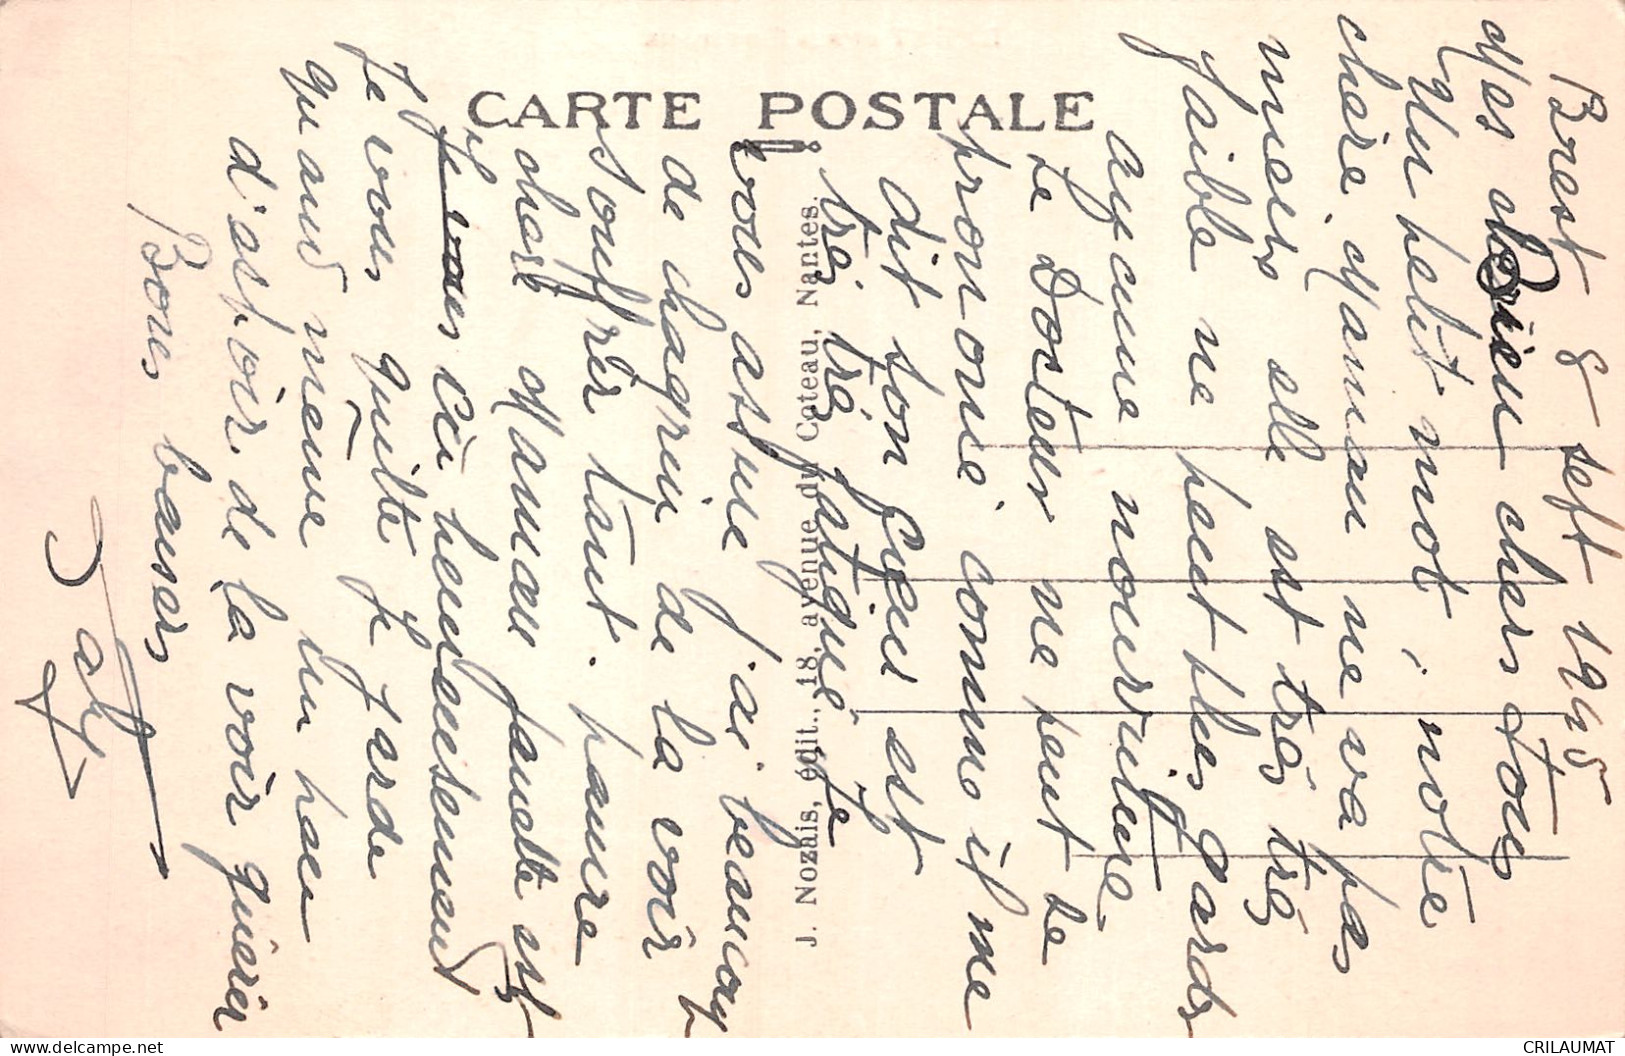 CARTE POSTALE
J. Nozais, édit., 18, avenue du Coteau, Nantes.
Brest 8 sept 1945
Mes Bien chers Tous
Un petit mot, notre
chère Maman ne va pas
mieux elle est très très
faible ne peut plus garder
aucune nourriture.
Le Docteur ne peut se
prononcé comme il me
dit son Cœur est
très très fatigué je
vous assure j'ai beaucoup
de chagrin de la voir
souffrir tant. pauvre
chère Maman ... est
ici heureusement
Je vous quitte je garde
quand même un peu
d'espoir de la voir guérir
Bons baisers
CRILAUMAT